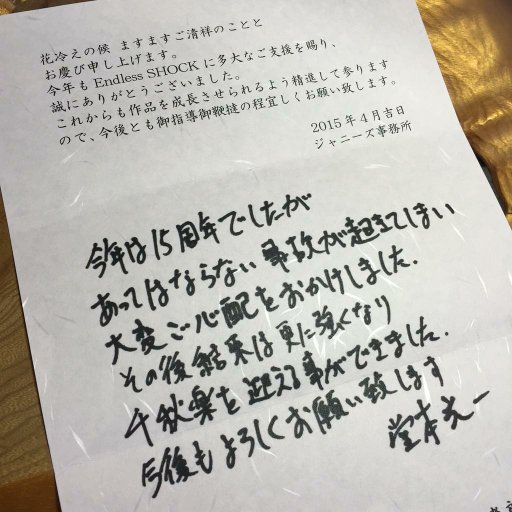 花冷えの候 ますますご清祥のことと
お慶び申し上げます。
今年も Endless SHOCK に多大なご支援を賜り、
誠にありがとうございました。
これからも作品を成長させられるよう精進して参ります
ので、今後とも御指導御鞭撻の程宜しくお願い致します。
2015年4月吉日
ジャニーズ事務所
今年は15周年でしたが
あってはならない事故が起きてしまい
大変ご心配をおかけしました.
その後結果は更に強くなり
千秋楽を迎える事ができました.
今後もよろしくお願い致します
堂本光一